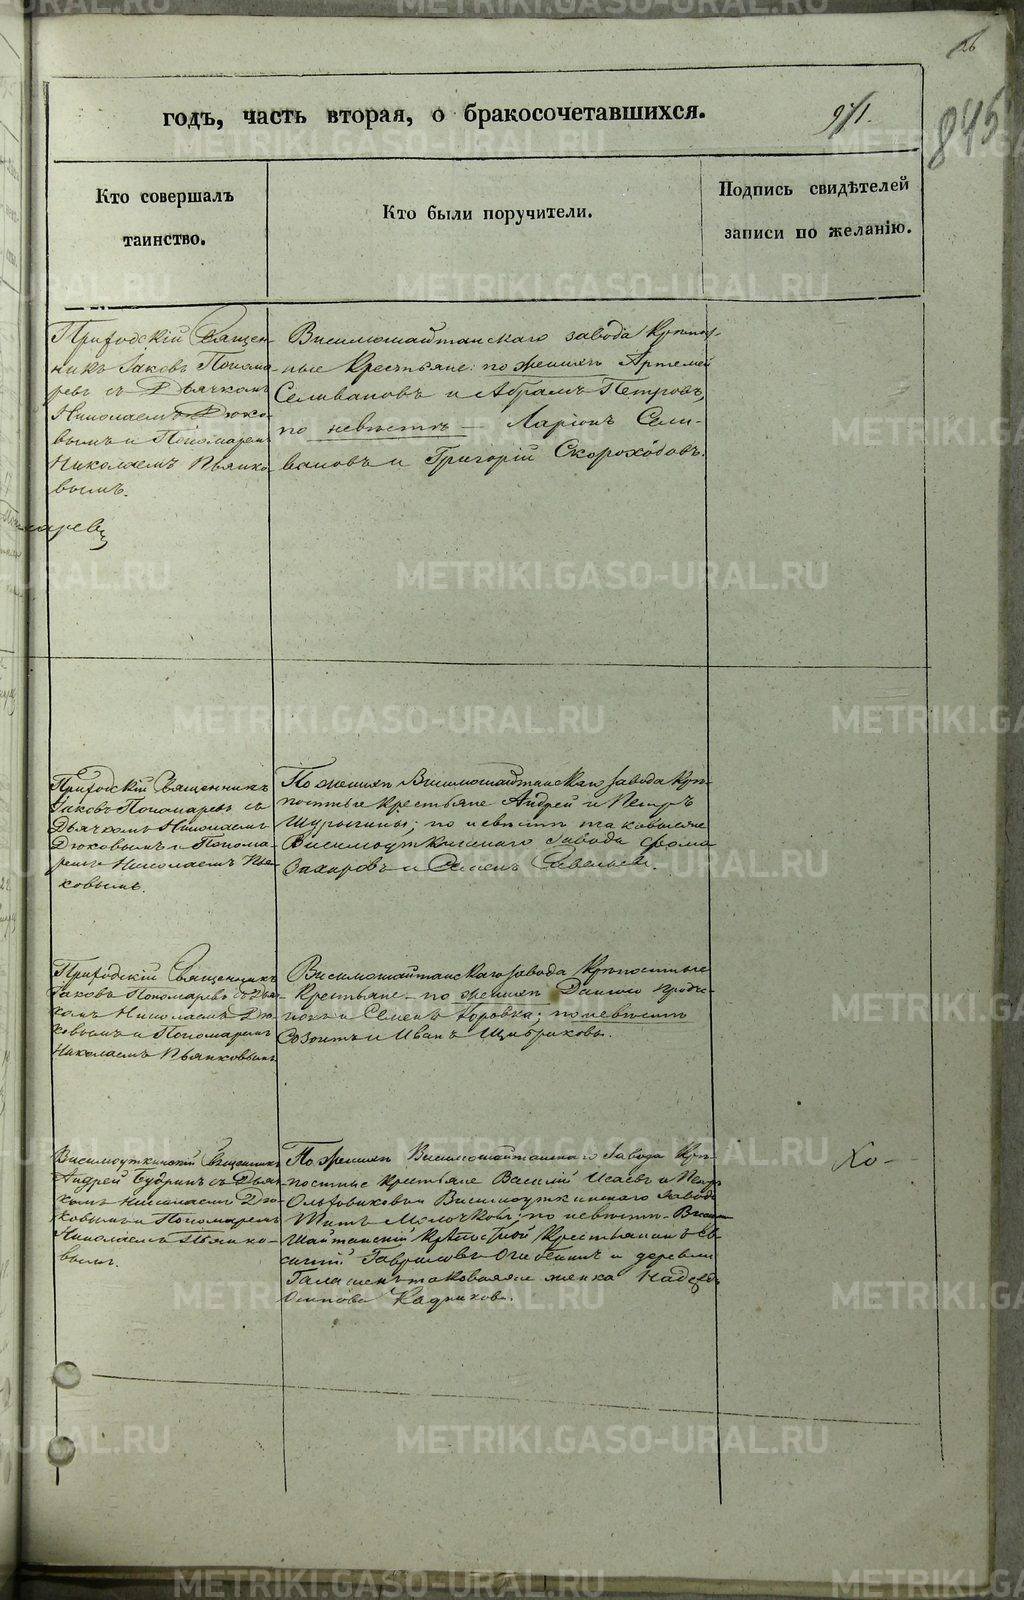 26
годъ, часть вторая, о бракосочетавшихся.
91.
845
Кто совершалъ
таинство.
Кто были поручители.
Подпись свидѣтелей
записи по желанію.
Приходскій Священ-
никъ Іаковъ Понома-
ревъ съ Дьячкомъ
Николаемъ Дюко-
вымъ и Пономаремъ
Николаемъ Пьянко-
вымъ.
Висимошайтанскаго завода крѣпост-
ные крестьяне: по женихѣ Артемей
Селивановъ и Абрамъ Петровъ,
по невѣстѣ — Ларіонъ Сели-
вановъ и Григорій Скороходовъ.
Приходскій Священникъ
Іаковъ Пономаревъ съ
Дьячкомъ Николаемъ
Дюковымъ и Понома-
ремъ Николаемъ Пьян-
ковымъ.
По женихѣ Висимошайтанскаго завода крѣ-
постные крестьяне Андрей и Петръ
по невѣстѣ таковыеже
Висимоуткинскаго завода Фома
Захаровъ и Семенъ Савельевъ.
Приходскій Священникъ
Іаковъ Пономаревъ съ Дья-
комъ Николаемъ Дю-
ковымъ и Пономаремъ
Николаемъ Пьянковымъ
Висимошайтанскаго завода крѣпостные
крестьяне — по женихѣ Данило
и Семенъ по невѣстѣ
Созонтъ и Иванъ
Висимоуткинскій Священникъ
Андрей Будринъ съ Дьяч-
комъ Николаемъ Дю-
ковымъ и Пономаремъ
Николаемъ Пьянко-
вымъ.
По женихѣ Висимошайтанскаго завода крѣ-
постные крестьяне Василій Исаевъ и Петръ
Ольховиковы и Висимоуткинскаго завода
Титъ Молочковъ; по невѣстѣ — Висимо-
шайтанскій крѣпостной крестьянинъ
Гавриловъ и деревни
таковаяже женка
Осипова